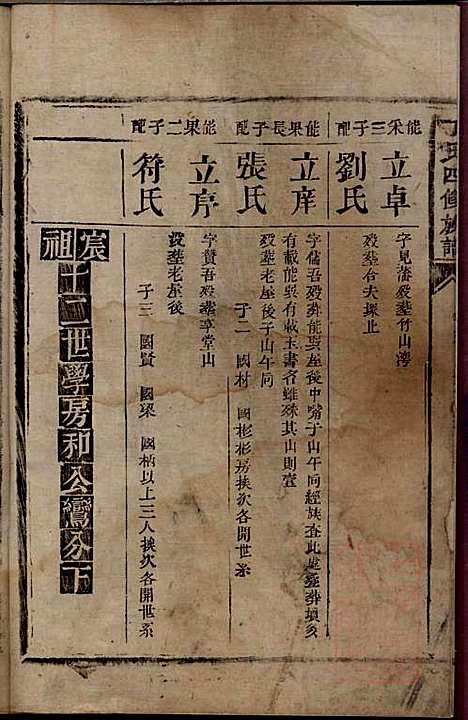 氏四修族譜
能采三子
立卓
配
劉氏
字見藩歿葬竹山灣
歿葬合夫塚止
能果長子
立庠
配
張氏
字儲吾歿葬能吳屋後中嘴子山午向經族查此處冢葬墳亥
有載能吳有載玉書名雖殊其山則壹
歿葬老屋後子山午向
子二 國材 國彬彬房挨次各開世系
能果二子
立序
配
符氏
字贊吾歿葬享堂山
歿葬老屋後
子三 國賢 國梁 國柄以上三人挨次各開世系
宸祖十二世學房和公鸞分下